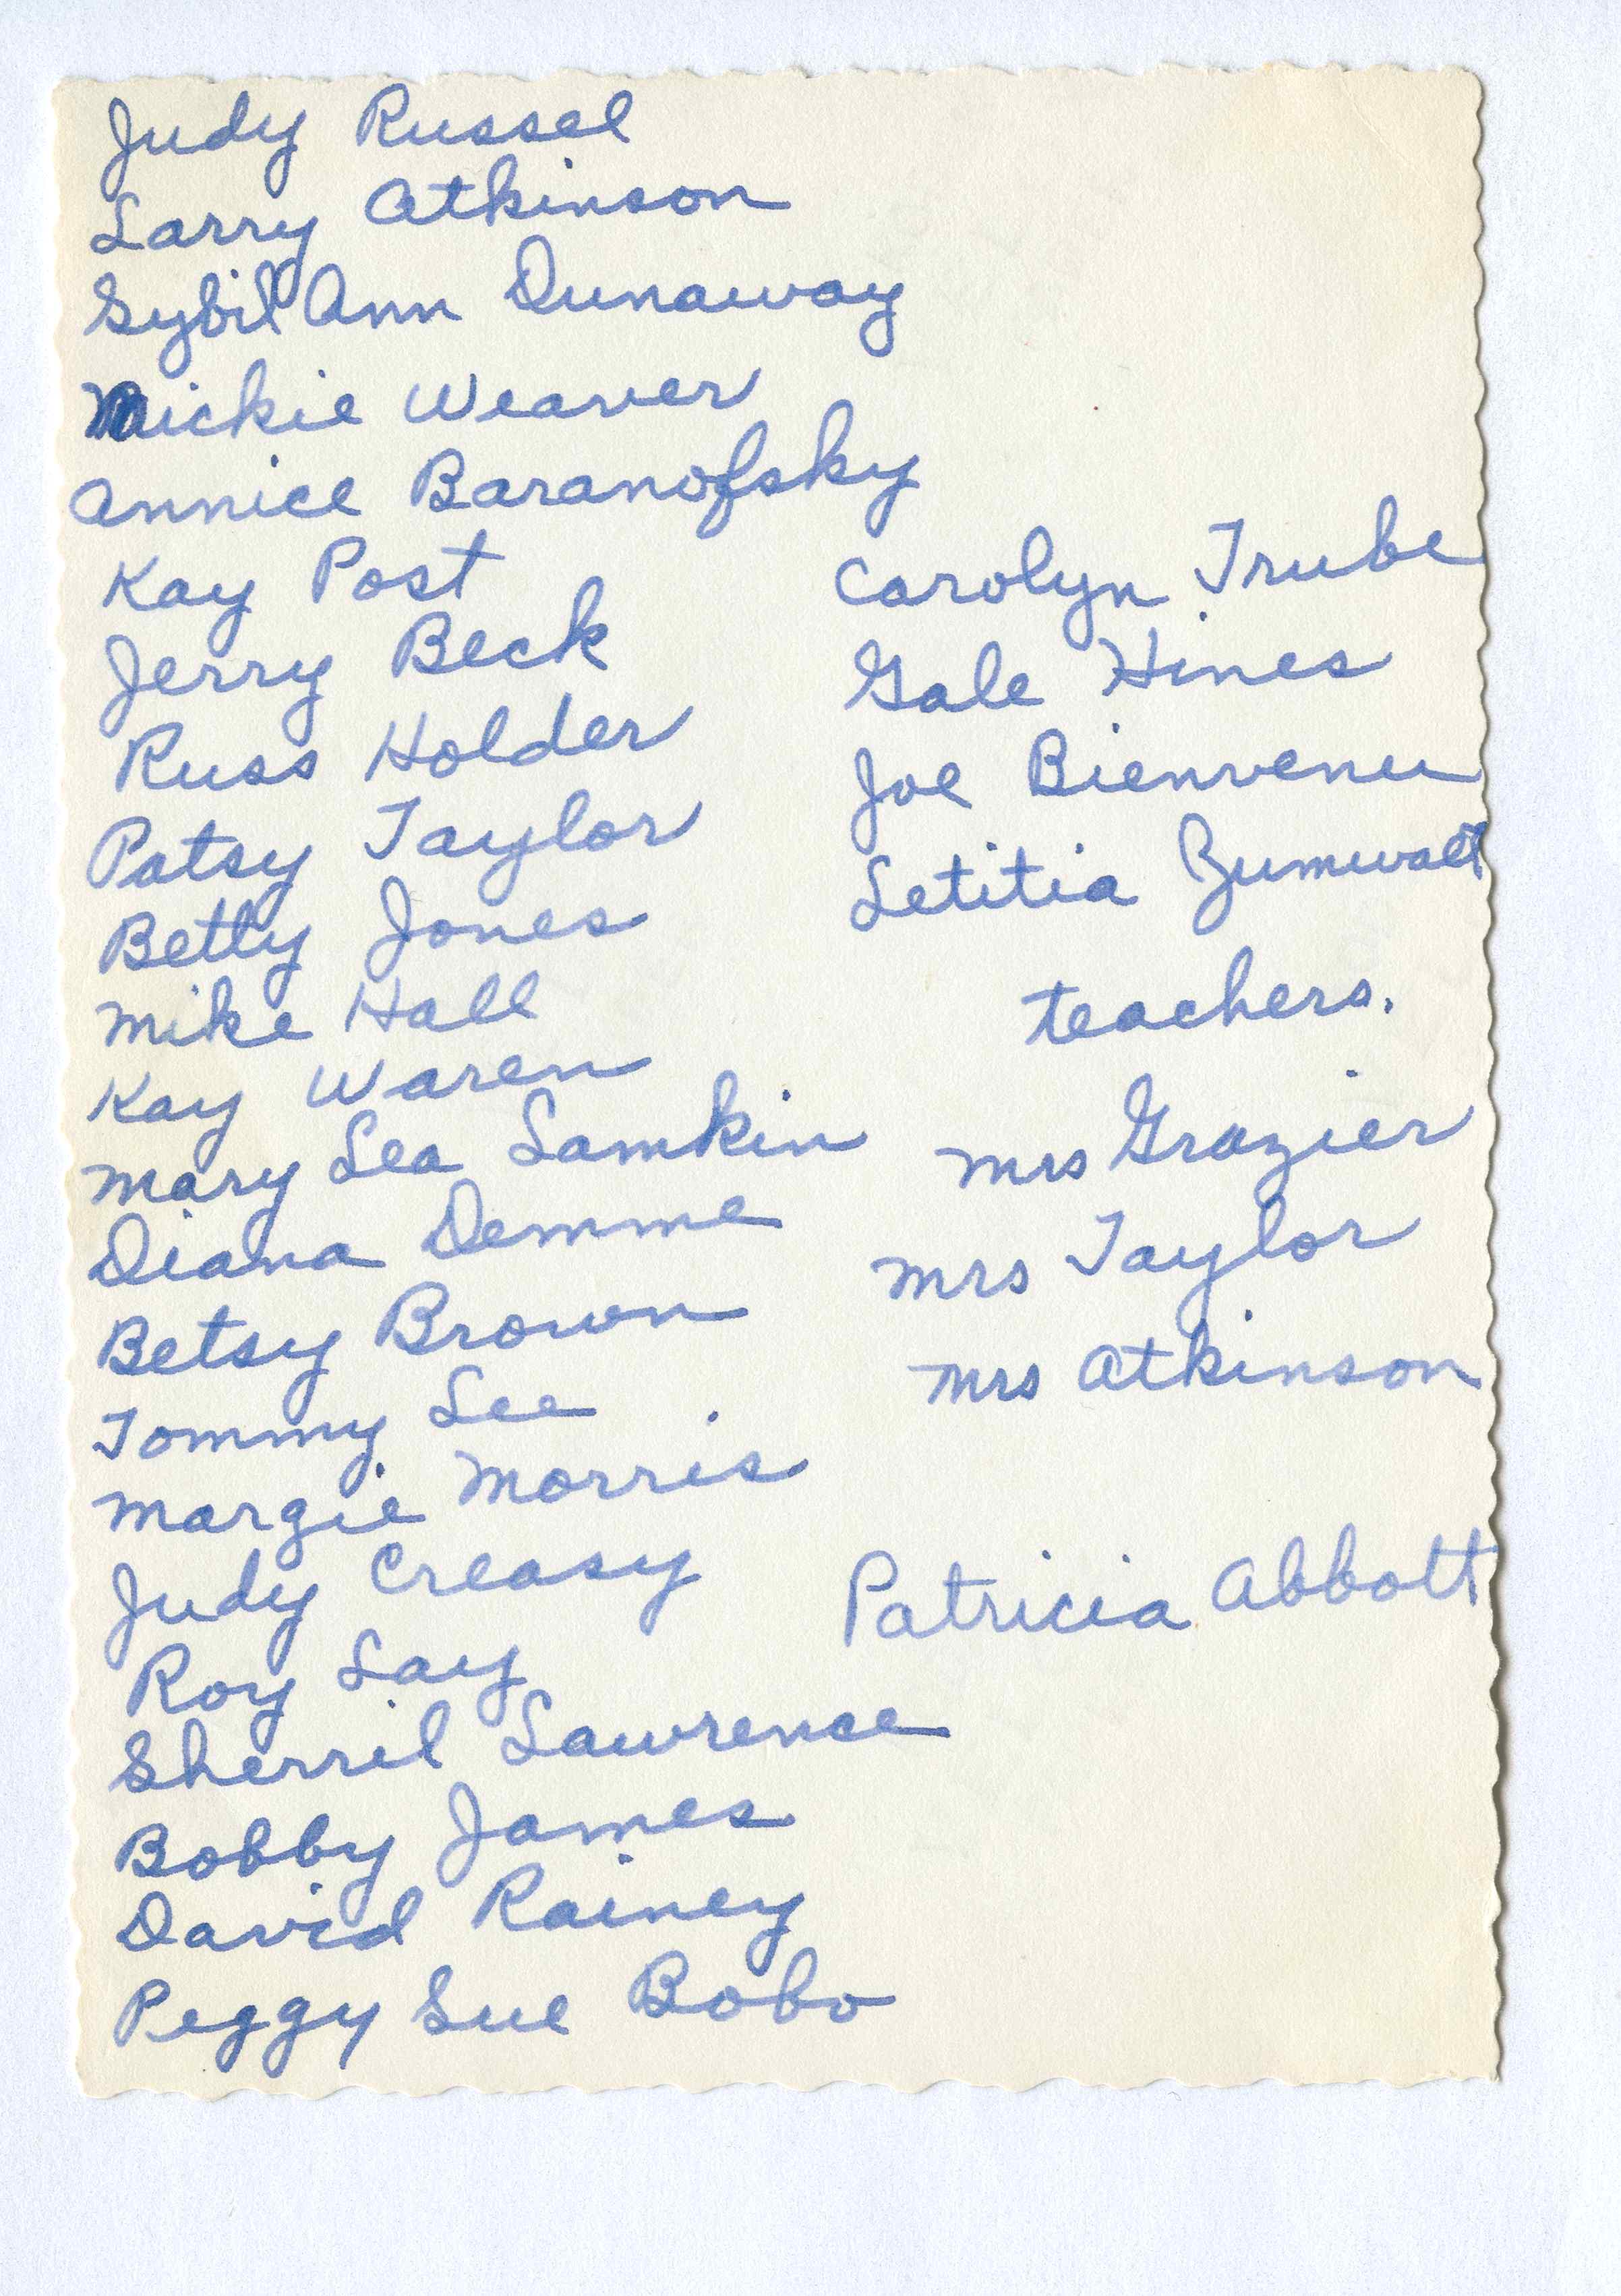 Judy Russel
Larry Atkinson
Sybil Ann Dunaway
Mickie Weaver
Annice Baranofsky
Kay Post
Jerry Beck
Russ Holder
Patsy Taylor
Betty Jones
Mike Hall
Kay Waren
Mary Lea Lamkin
Diana Demme
Betsy Brown
Tommy Lee
Margie Morris
Judy Creasy
Roy Lay
Sherril Lawrence
Bobby James
David Rainey
Peggy Sue Bobo
Carolyn Trube
Gale Hines
Joe Bienvenu
Letitia Zumwalt
teachers.
Mrs Grazier
Mrs Taylor
Mrs Atkinson
Patricia Abbott